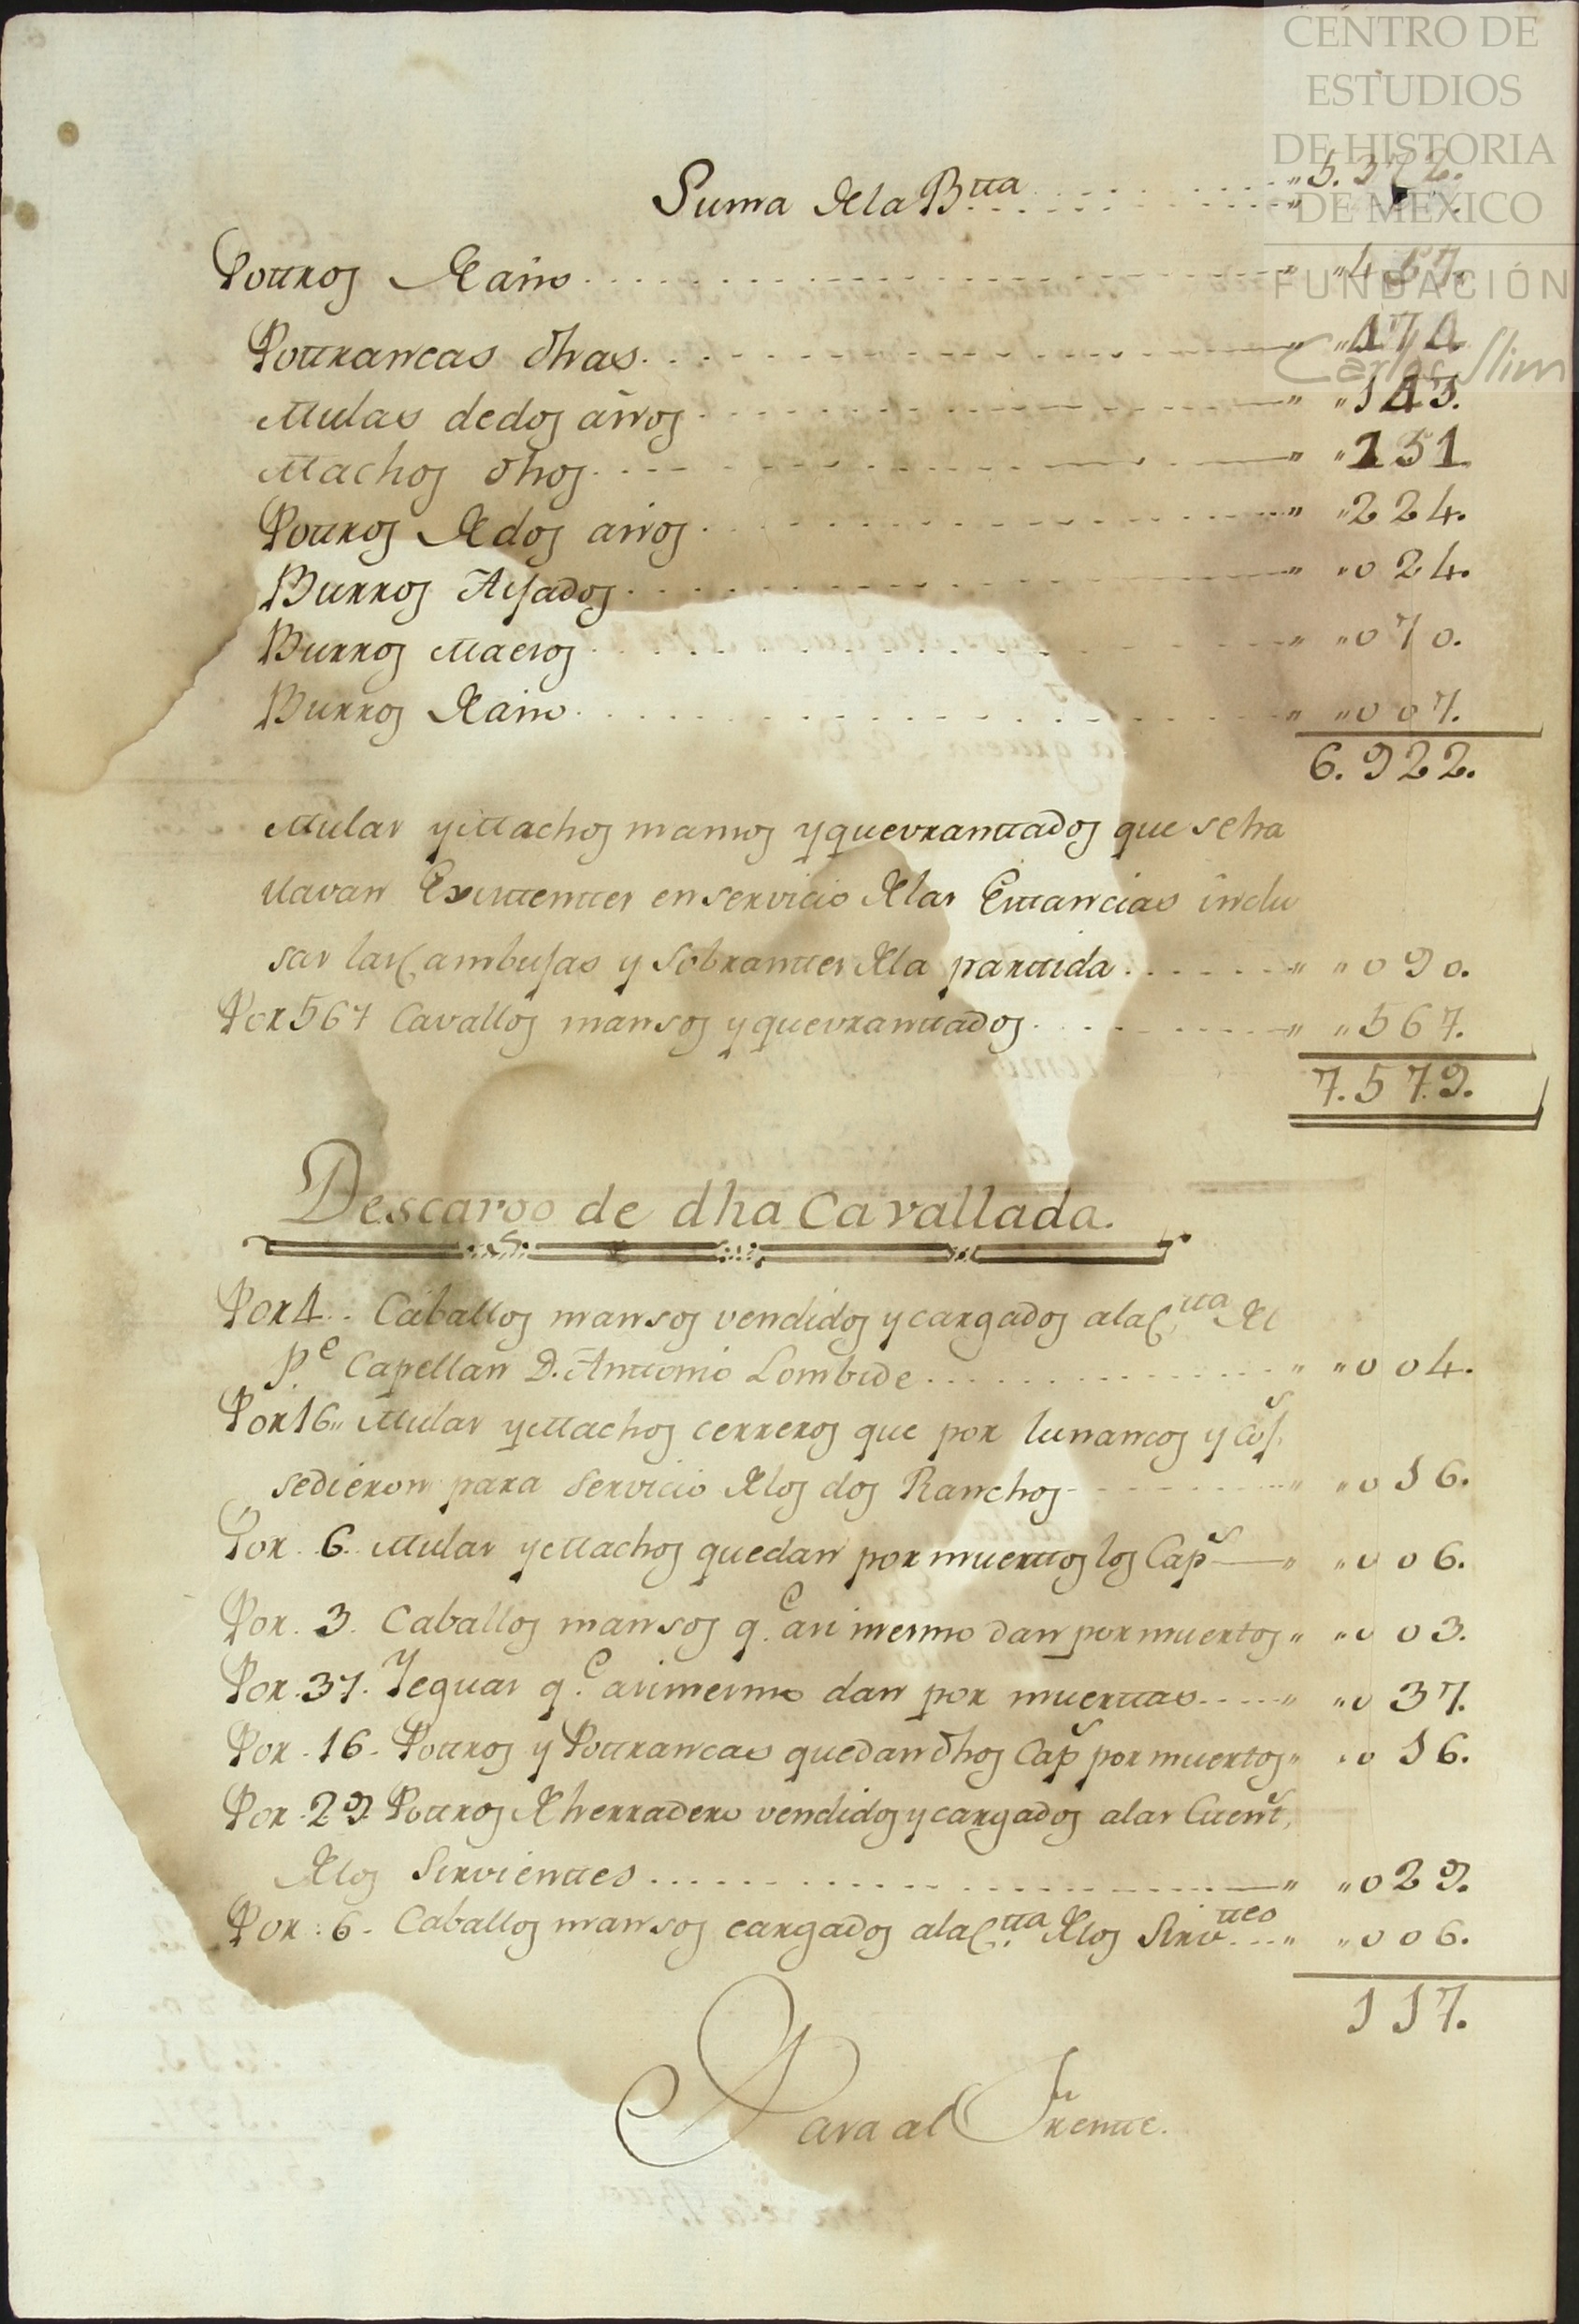 CENTRO DE
ESTUDIOS
DE HISTORIA
DE MÉXICO
FUNDACIÓN
Carlos Slim
Suma de la B.tta
Pottros de año
Pottrancas dhas 474
Mulas de dos años 143.
Machos dhos 131
Pottros de dos años 224.
Burros Aesados 024.
Burros Maeros 070.
Burros de año 007.
6.922.
Mulas y Machos mansos y quevranttados que se ha
llavan Existtenttes en servicio de las Esttancias inclu
sas las Cambujas y sobranttes de la parttida 090.
Por 567 Cavallos mansos y quevranttados 567.
7.579.
Descargo de dha Cavallada.
Por 4. Caballos mansos vendidos y cargados a la C.tta del
P.e Capellan D. Anttonio Lombide 004.
Por 16 Mulas y Machos cerreros que por lunancos y cojs.
se dieron para servicio de los dos Ranchos 016.
Por 6. Mulas y Machos quedan por muerttos los Caps 006.
Por 3. Caballos mansos q.e asi mesmo dan por muertos 003.
Por 37. Yeguas q.e asi mesmo dan por muerttas 037.
Por 16. Pottros y Pottrancas quedan dhos Caps por muertos 016.
Por 29 Pottros de herradero vendidos y cargados a las Cuents,
de los Sirvienttes 029.
Por 6. Caballos mansos cargados a la C.tta de los Sirv.ttes 006.
117.
Para al Frentte.